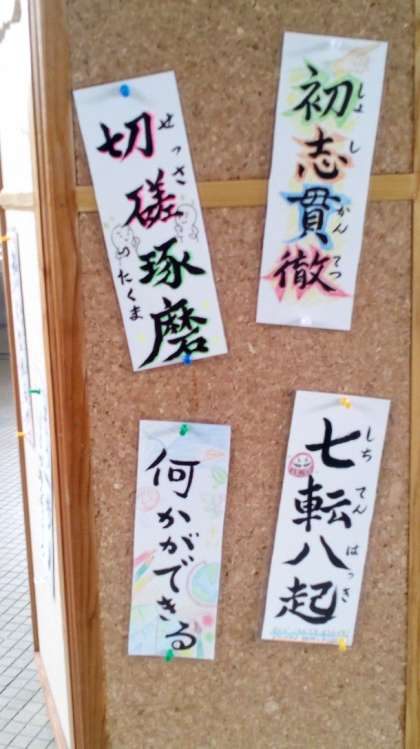 初志貫徹
しょしかんてつ
切磋琢磨
せっさたくま
七転八起
しちてんはっき
何かができる